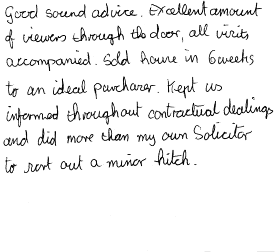 Good sound advice. Excellent amount
of viewers through the door, all visits
accompanied. Sold house in 6 weeks
to an ideal purchaser. Kept us
informed throughout contractual dealings
and did more than my own Solicitor
to sort out a minor hitch.